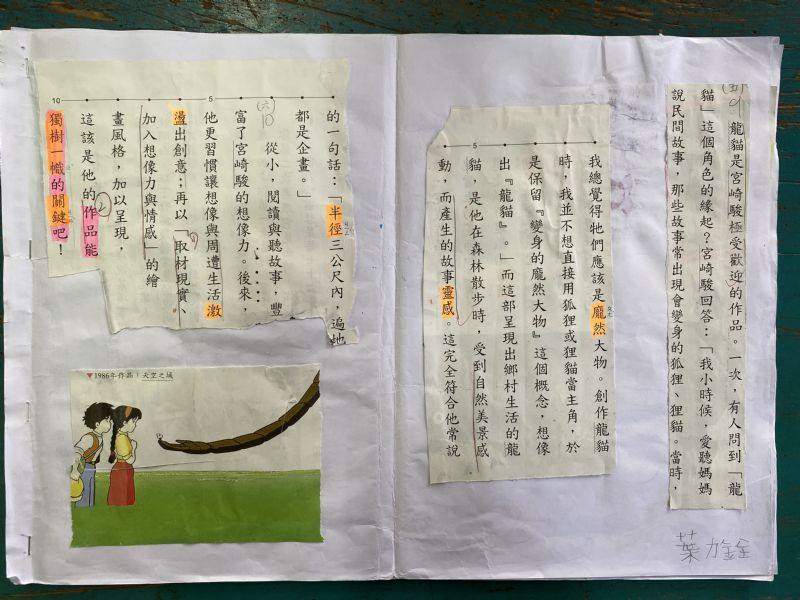 (五)
9
龍貓是宮崎駿極受歡迎的作品。一次，有人問到「龍
貓」這個角色的緣起？宮崎駿回答：「我小時候，愛聽媽媽
說民間故事，那些故事常出現會變身的狐狸、狸貓。當時，
我總覺得牠們應該是龐然大物。創作龍貓
時，我並不想直接用狐狸或狸貓當主角，於
是保留『變身的龐然大物』這個概念，想像
出『龍貓』。」而這部呈現出鄉村生活的龍
貓，是他在森林散步時，受到自然美景感
動，而產生的故事靈感。這完全符合他常說
5
葉
的一句話：「半徑三公尺內，遍地
都是企畫。」
(六)
10
從小，閱讀與聽故事，豐
富了宮崎駿的想像力。後來，
他更習慣讓想像與周遭生活激
盪出創意；再以「取材現實、
加入想像力與情感」的繪
畫風格，加以呈現，
這該是他的作品能
獨樹一幟的關鍵吧！
5
10
▼1986年作品：天空之城